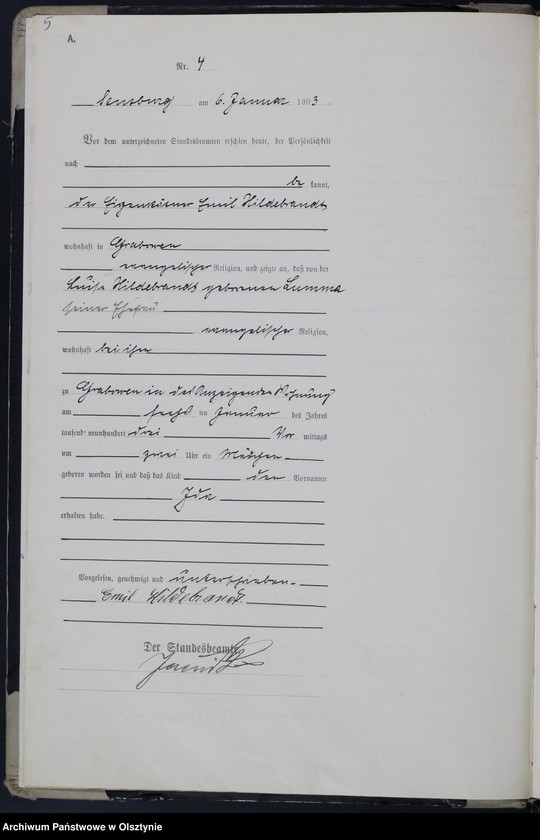 5
A.
Nr. 4
Sensburg am 6. Januar 1903.
Vor dem unterzeichneten Standesbeamten erschien heute, der Persönlichkeit
nach
be kannt,
der Eigenkätner Emil Hildebrandt
wohnhaft in Grabowen
evangelischer Religion, und zeigte an, daß von der
Luise Hildebrandt geborenen Lumma
seiner Ehefrau
evangelischer Religion,
wohnhaft bei ihm
zu Grabowen in des Anzeigenden Wohnung
am sechs ten Januar des Jahres
tausend neunhundert drei Vor mittags
um zwei Uhr ein Mädchen
geboren worden sei und daß das Kind den Vornamen
Ida
erhalten habe.
Vorgelesen, genehmigt und unterschrieben.
Emil Hildebrandt.
Der Standesbeamte
Archiwum Państwowe w Olsztynie